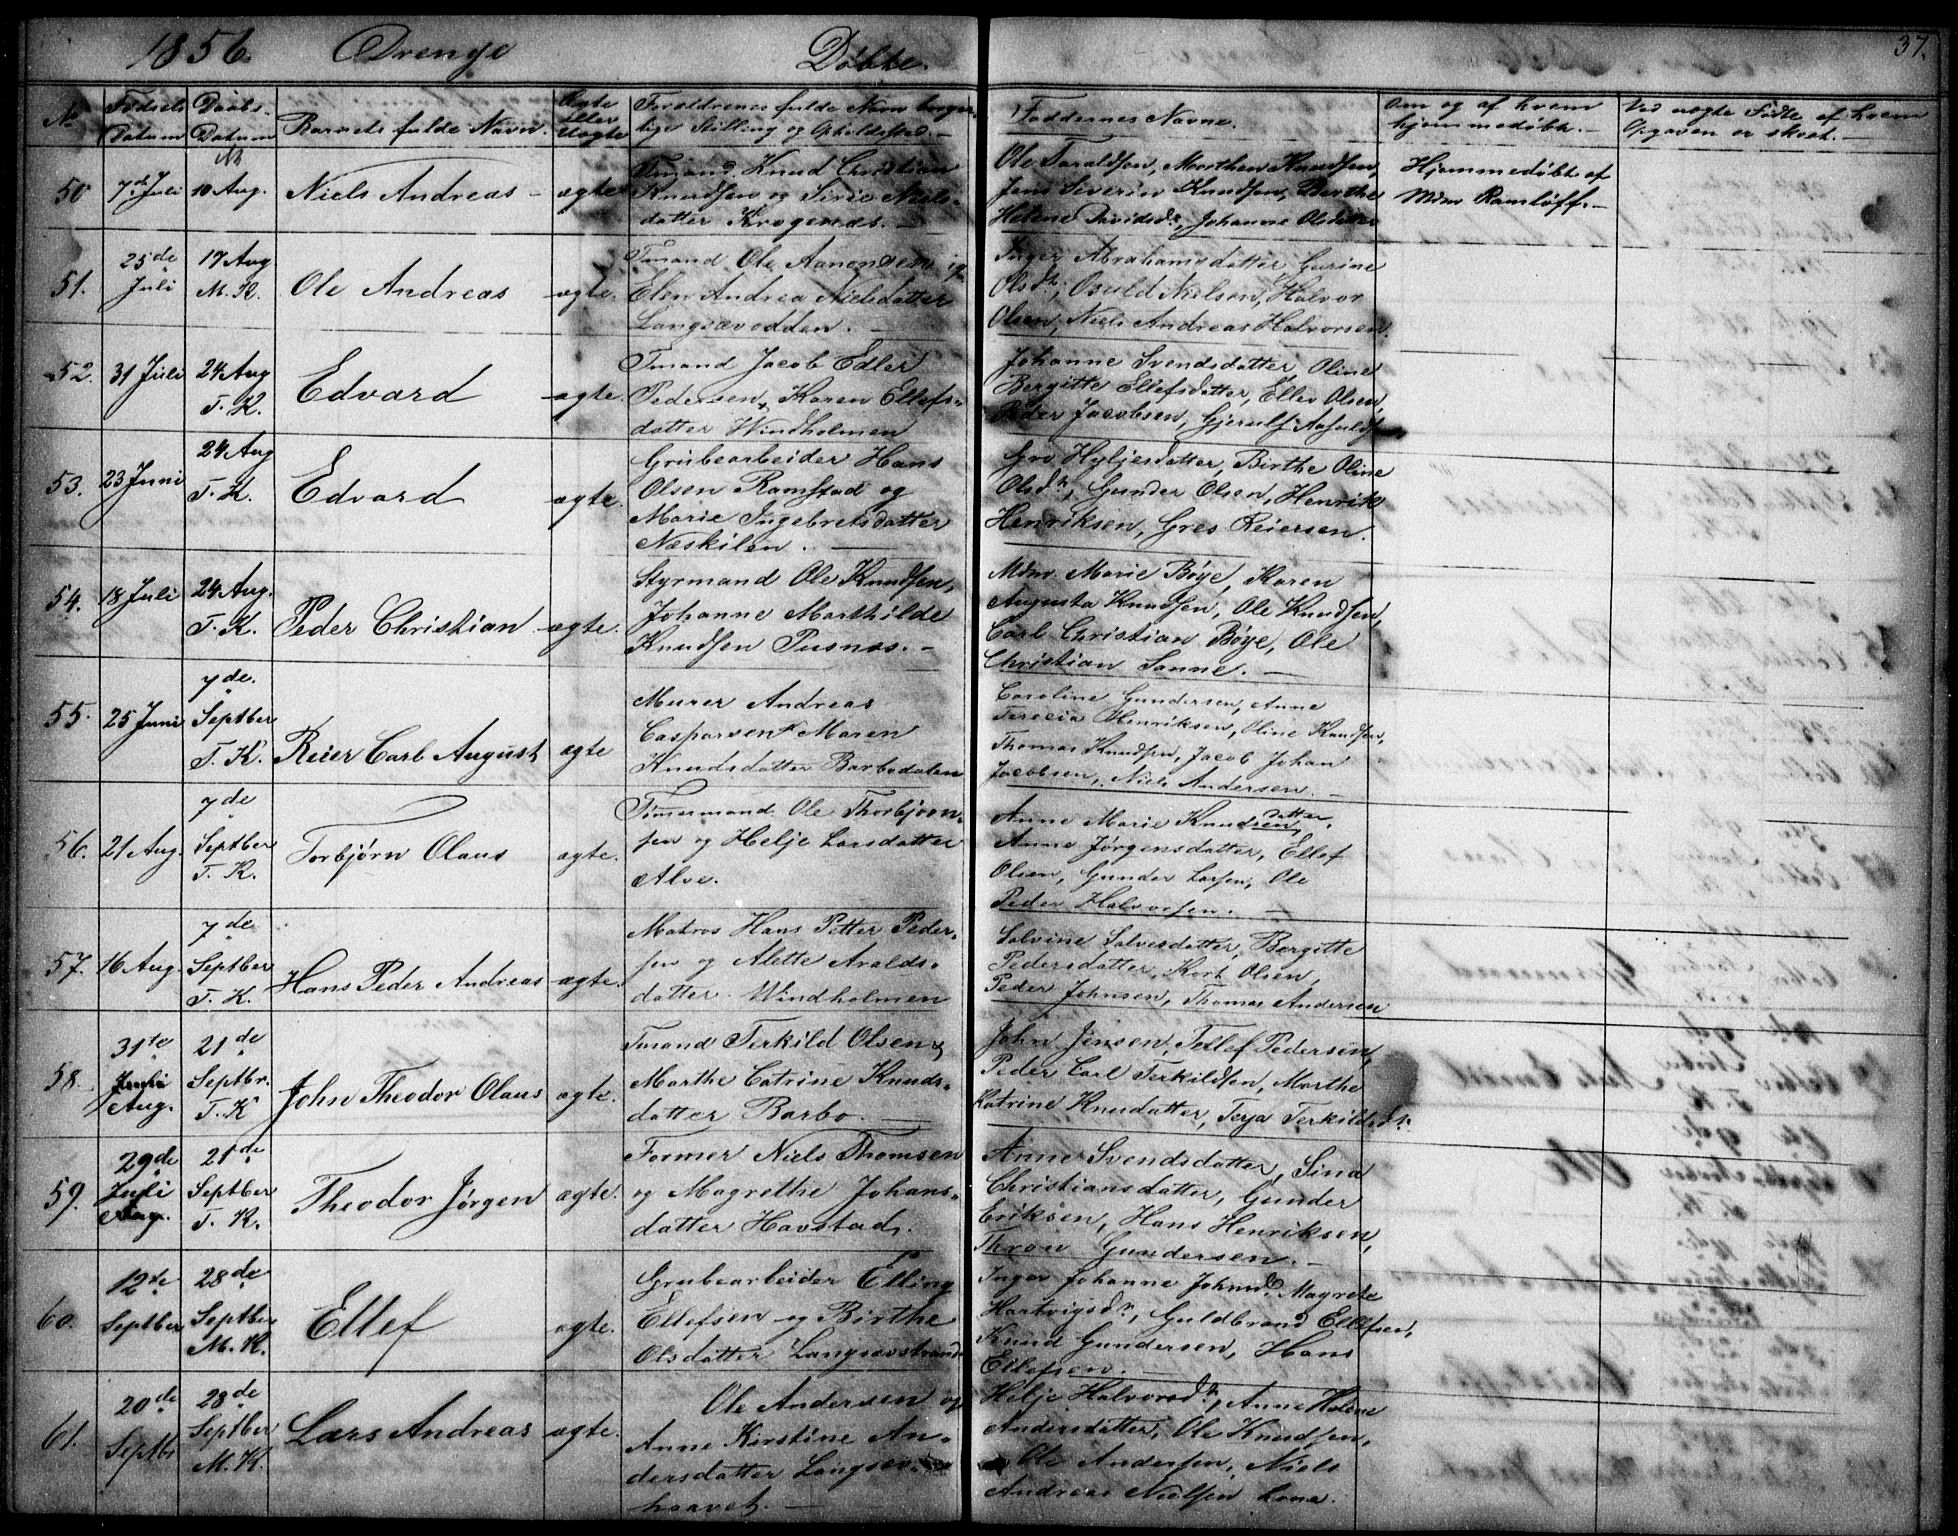 1856. Drenge Døbte. 37.
No. Fødsels Datum Daabs- Datum Barnets fulde Navn. Ægte eller Uægte Forældrenes fulde Navn borger- lige Stilling og Opholdssted. Faddernes Navne. Om og af hvem hjemmedøbt. Ved uægte Fødte af hvem Opgaven er skeet.
50 7de Juli
10 Aug.
Niels Andreas
ægte
Knud Christian
Knudsen og Sirie Niels-
datter Krogenæs.
Ole Taraldsen, Morthen Knudsen,
Jens Severin Knudsen, Berthe
Helene Davidsdr, Johanne Olsdatter
Hjemmedøbt af
Mdm Ramløff.
51. 25de
Juli
17 Aug
M. K.
Ole Andreas
ægte
Tmand Ole Aanensen og
Elen Andrea Nielsdatter
Langsævodden.
Inger Abrahamsdatter, Gurine
Olsdr, Osuld Nielsen, Halvor
Olsen, Niels Andreas Halvorsen.
52. 31 Juli
24 Aug
T. K.
Edvard
ægte.
Tmand Jacob Edler
Pedersen, Karen Ellefs-
datter Windholmen
Johanne Svendsdatter, Oline
Bergitte Ellefsdatter, Ellev Olsen,
Peder Jacobsen, Gjerulf
53. 23 Juni
24 Aug
T. K.
Edvard
ægte.
Grubearbeider Hans
Olsen Ramstad og
Marie Ingebretsdatter
Næskilen.
Gro Hyljesdatter, Birthe Oline
Olsdr, Gunder Olsen, Henrik
Henriksen, Gres Reiersen.
54. 18 Juli
24 Aug.
T. K.
Peder Christian
ægte.
Styrmand Ole Knudsen,
Johanne Marthilde
Knudsen Pusnæs.
Mdm. Marie Bøye, Karen
Augusta Knudsen, Ole Knudsen,
Carl Christian Bøye, Ole
Christian Sanne.
55. 25 Juni
7de.
Septber
T. K.
Reier Carl August
ægte
Murer Andreas
Casparsen Maren
Knudsdatter Barbodalen
Caroline Gundersen, Anne
Terecia Henriksen, Oline Knudsen,
Thomas Knudsen, Jacob Johan
Jacobsen, Niels Andersen.
56. 21 Aug.
7de
Septber
T. K.
Torbjørn Olaus
ægte.
Timermand Ole Thorbjørn-
sen og Helje Larsdatter
Alve.
Anne Marie Knudsen datter,
Anne Jørgensdatter, Ellef
Olsen, Gunder Larsen, Ole
Peder Halvorsen.
57. 16 Aug.
7de
Septber
T. K.
Hans Peder Andreas
ægte.
Matros Hans Petter Peder-
sen og Alette Aralds-
datter Windholmen
Salvine Salvesdatter, Bergitte
Pedersdatter, Kort Olsen,
Peder Johnsen, Thomas Andersen
58. 31te
Juli
Aug.
21de
Septbr.
T. K
John Theodor Olaus
ægte.
Tmand Terkild Olsen
Marthe Catrine Knuds-
datter Barbo.
John Jensen, Tellef Pedersen,
Peder Carl Terkildsen, Marthe
Katrine Knusdatter, Terja Terkildsdr.
59. 29de
Juli
Aug.
21de
Septber
T. K.
Theodor Jørgen
ægte.
Former Niels Thomsen
og Magrethe Johans-
datter Havstad.
Anne Svendsdatter, Sina
Christiansdatter, Gunder
Eriksen, Hans Henriksen,
Thron Gundersen.
60. 12te
Septber
28de
Septber
M. K.
Ellef
ægte.
Grubearbeider Elling
Ellefsen og Birthe
Olsdatter Langsævstrand
Inger Johanne Johnsd. Magrete
Hartvigsdr, Guldbrand Ellefsen,
Knud Gundersen, Hans
Ellefsen.
61. 20de
Septbr
28de
Septber
M. K.
Lars Andreas
ægte.
Ole Andersen og
Anne Kirstine An-
dersdatter Langsæv-
haavet.
Helje Halvorsdr, Anne Helene
Andersdatter, Ole Knudsen,
Ole Andersen, Niels
Andreas Nielsen Lona.